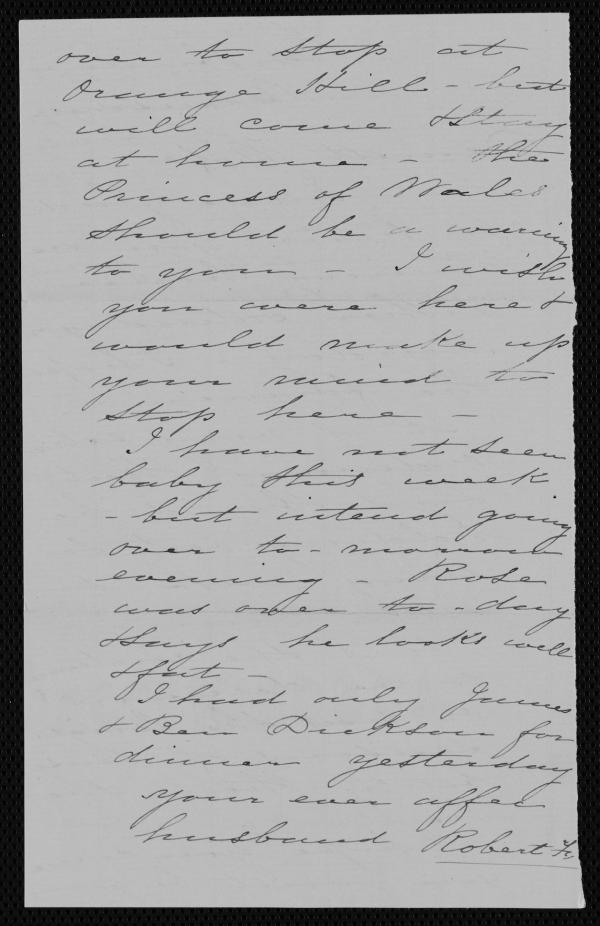 over to stop at
Orange Hill - but
will come & stay
at home - the
Princess of Wales
should be a warning
to you - I wish
you were here &
would make up
your mind to
stop here -
I have not seen
baby this week
- but intend going
over to-morrow
evening - Rose
was over to-day
& says he looks well
& fat -
I had only James
& Ben Dickson for
dinner yesterday
your ever affec
husband Robert